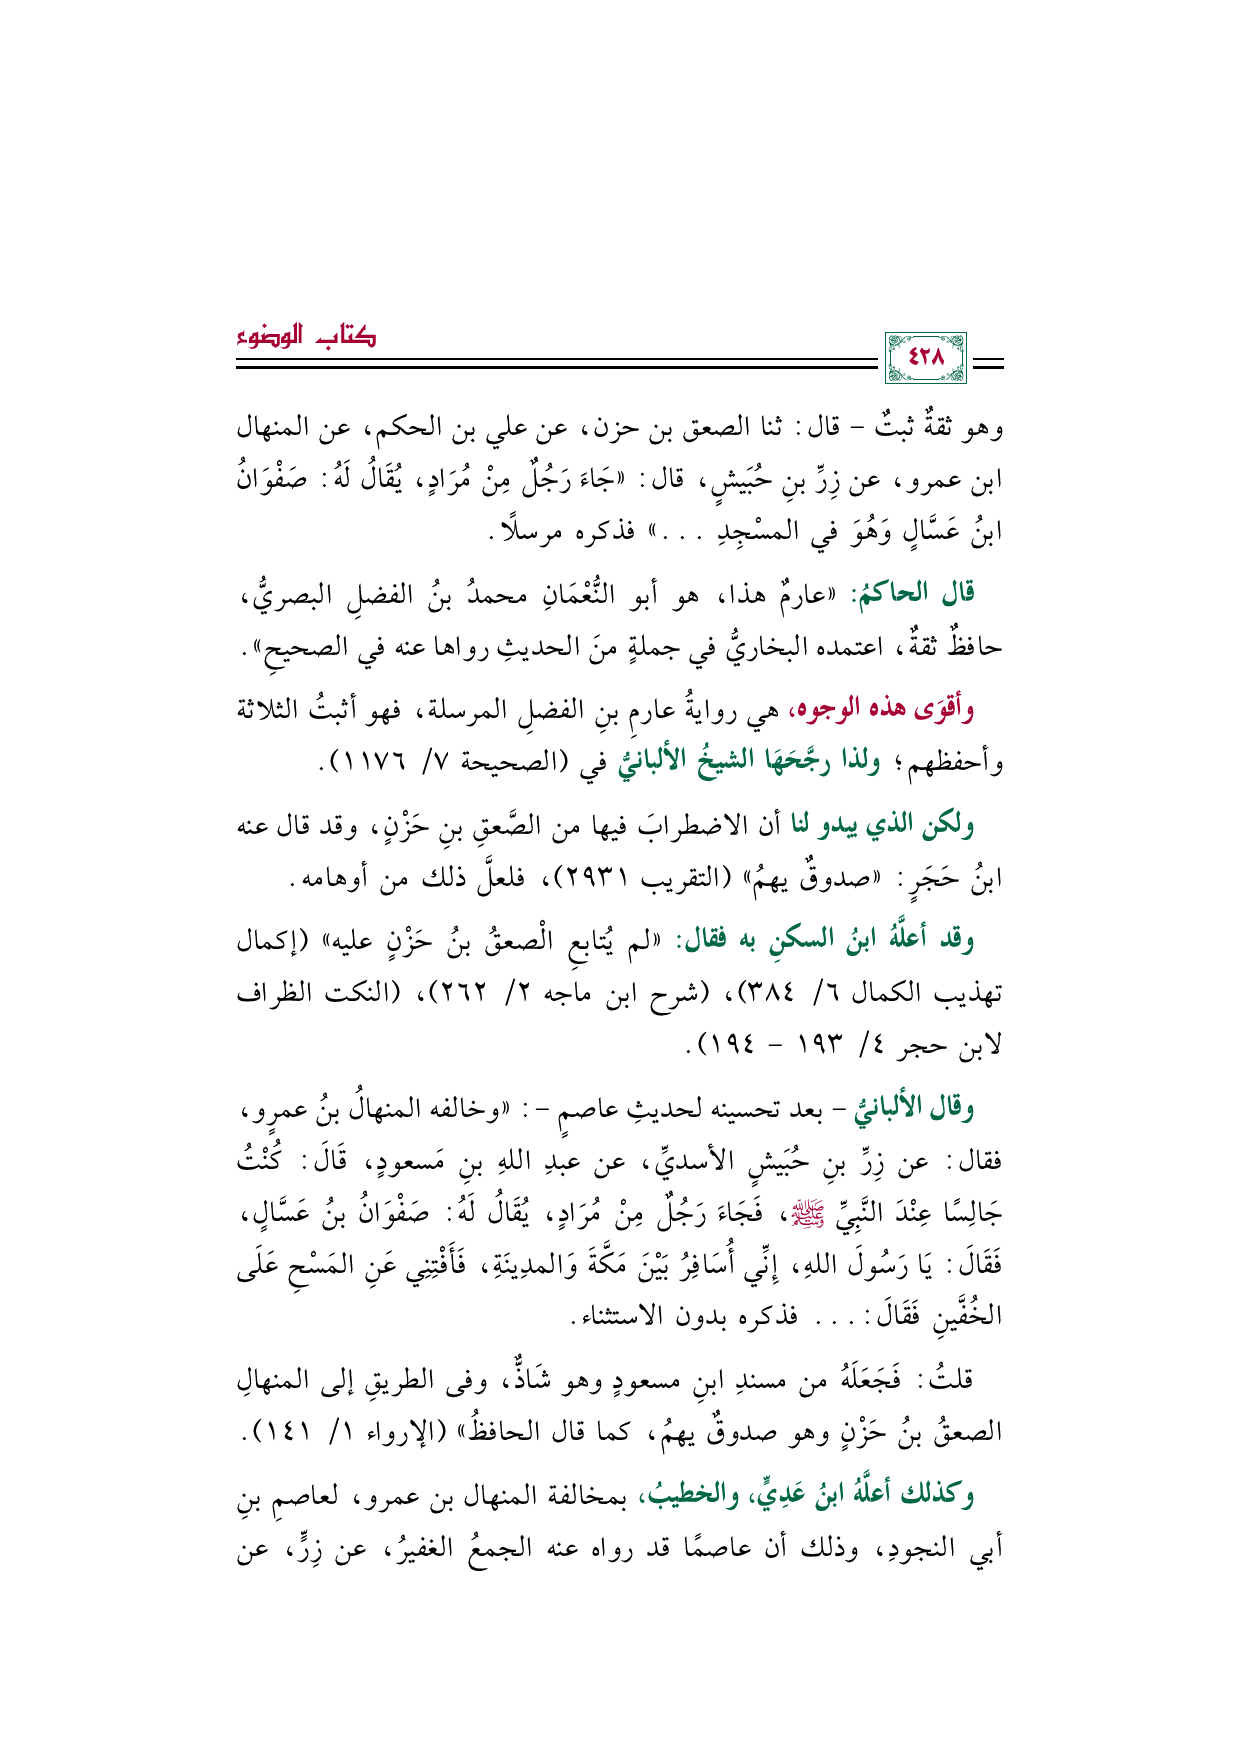 كتاب الوضوء
٤٢٨
وهو ثقةٌ ثبتٌ – قال: ثنا الصعق بن حزن، عن علي بن الحكم، عن المنهال
ابن عمرو، عن زِرِّ بنِ حُبَيشٍ، قال: «جَاءَ رَجُلٌ مِنْ مُرَادٍ، يُقَالُ لَهُ: صَفْوَانُ
ابنُ عَسَّالٍ وَهُوَ في المسْجِدِ ...» فذكره مرسلًا.
قال الحاكمُ: «عارمٌ هذا، هو أبو النُّعْمَانِ محمدُ بنُ الفضلِ البصريُّ،
حافظٌ ثقةٌ، اعتمده البخاريُّ في جملةٍ منَ الحديثِ رواها عنه في الصحيحِ».
وأقوَى هذه الوجوه، هي روايةُ عارمِ بنِ الفضلِ المرسلة، فهو أثبتُ الثلاثة
وأحفظهم؛ ولذا رجَّحَهَا الشيخُ الألبانيُّ في (الصحيحة ٧/ ١١٧٦).
ولكن الذي يبدو لنا أن الاضطرابَ فيها من الصَّعقِ بنِ حَزْنٍ، وقد قال عنه
ابنُ حَجَرٍ: «صدوقٌ يهمُ» (التقريب ٢٩٣١)، فلعلَّ ذلك من أوهامه.
وقد أعلَّهُ ابنُ السكنِ به فقال: «لم يُتابعِ الْصعقُ بنُ حَزْنٍ عليه» (إكمال
تهذيب الكمال ٦/ ٣٨٤)، (شرح ابن ماجه ٢/ ٢٦٢)، (النكت الظراف
لابن حجر ٤/ ١٩٣ – ١٩٤).
وقال الألبانيُّ – بعد تحسينه لحديثِ عاصمٍ –: «وخالفه المنهالُ بنُ عمرٍو،
فقال: عن زِرِّ بنِ حُبَيشٍ الأسديِّ، عن عبدِ اللهِ بنِ مَسعودٍ، قَالَ: كُنْتُ
جَالِسًا عِنْدَ النَّبِيِّ ﷺ، فَجَاءَ رَجُلٌ مِنْ مُرَادٍ، يُقَالُ لَهُ: صَفْوَانُ بنُ عَسَّالٍ،
فَقَالَ: يَا رَسُولَ اللهِ، إِنِّي أُسَافِرُ بَيْنَ مَكَّةَ وَالمدِينَةِ، فَأَفْتِنِي عَنِ المَسْحِ عَلَى
الخُفَّينِ فَقَالَ: ... فذكره بدون الاستثناء.
قلتُ: فَجَعَلَهُ من مسندِ ابنِ مسعودٍ وهو شَاذٌّ، وفى الطريقِ إلى المنهالِ
الصعقُ بنُ حَزْنٍ وهو صدوقٌ يهمُ، كما قال الحافظُ» (الإرواء ١/ ١٤١).
وكذلك أعلَّهُ ابنُ عَدِيٍّ، والخطيبُ، بمخالفة المنهال بن عمرو، لعاصمِ بنِ
أبي النجودِ، وذلك أن عاصمًا قد رواه عنه الجمعُ الغفيرُ، عن زِرٍّ، عن